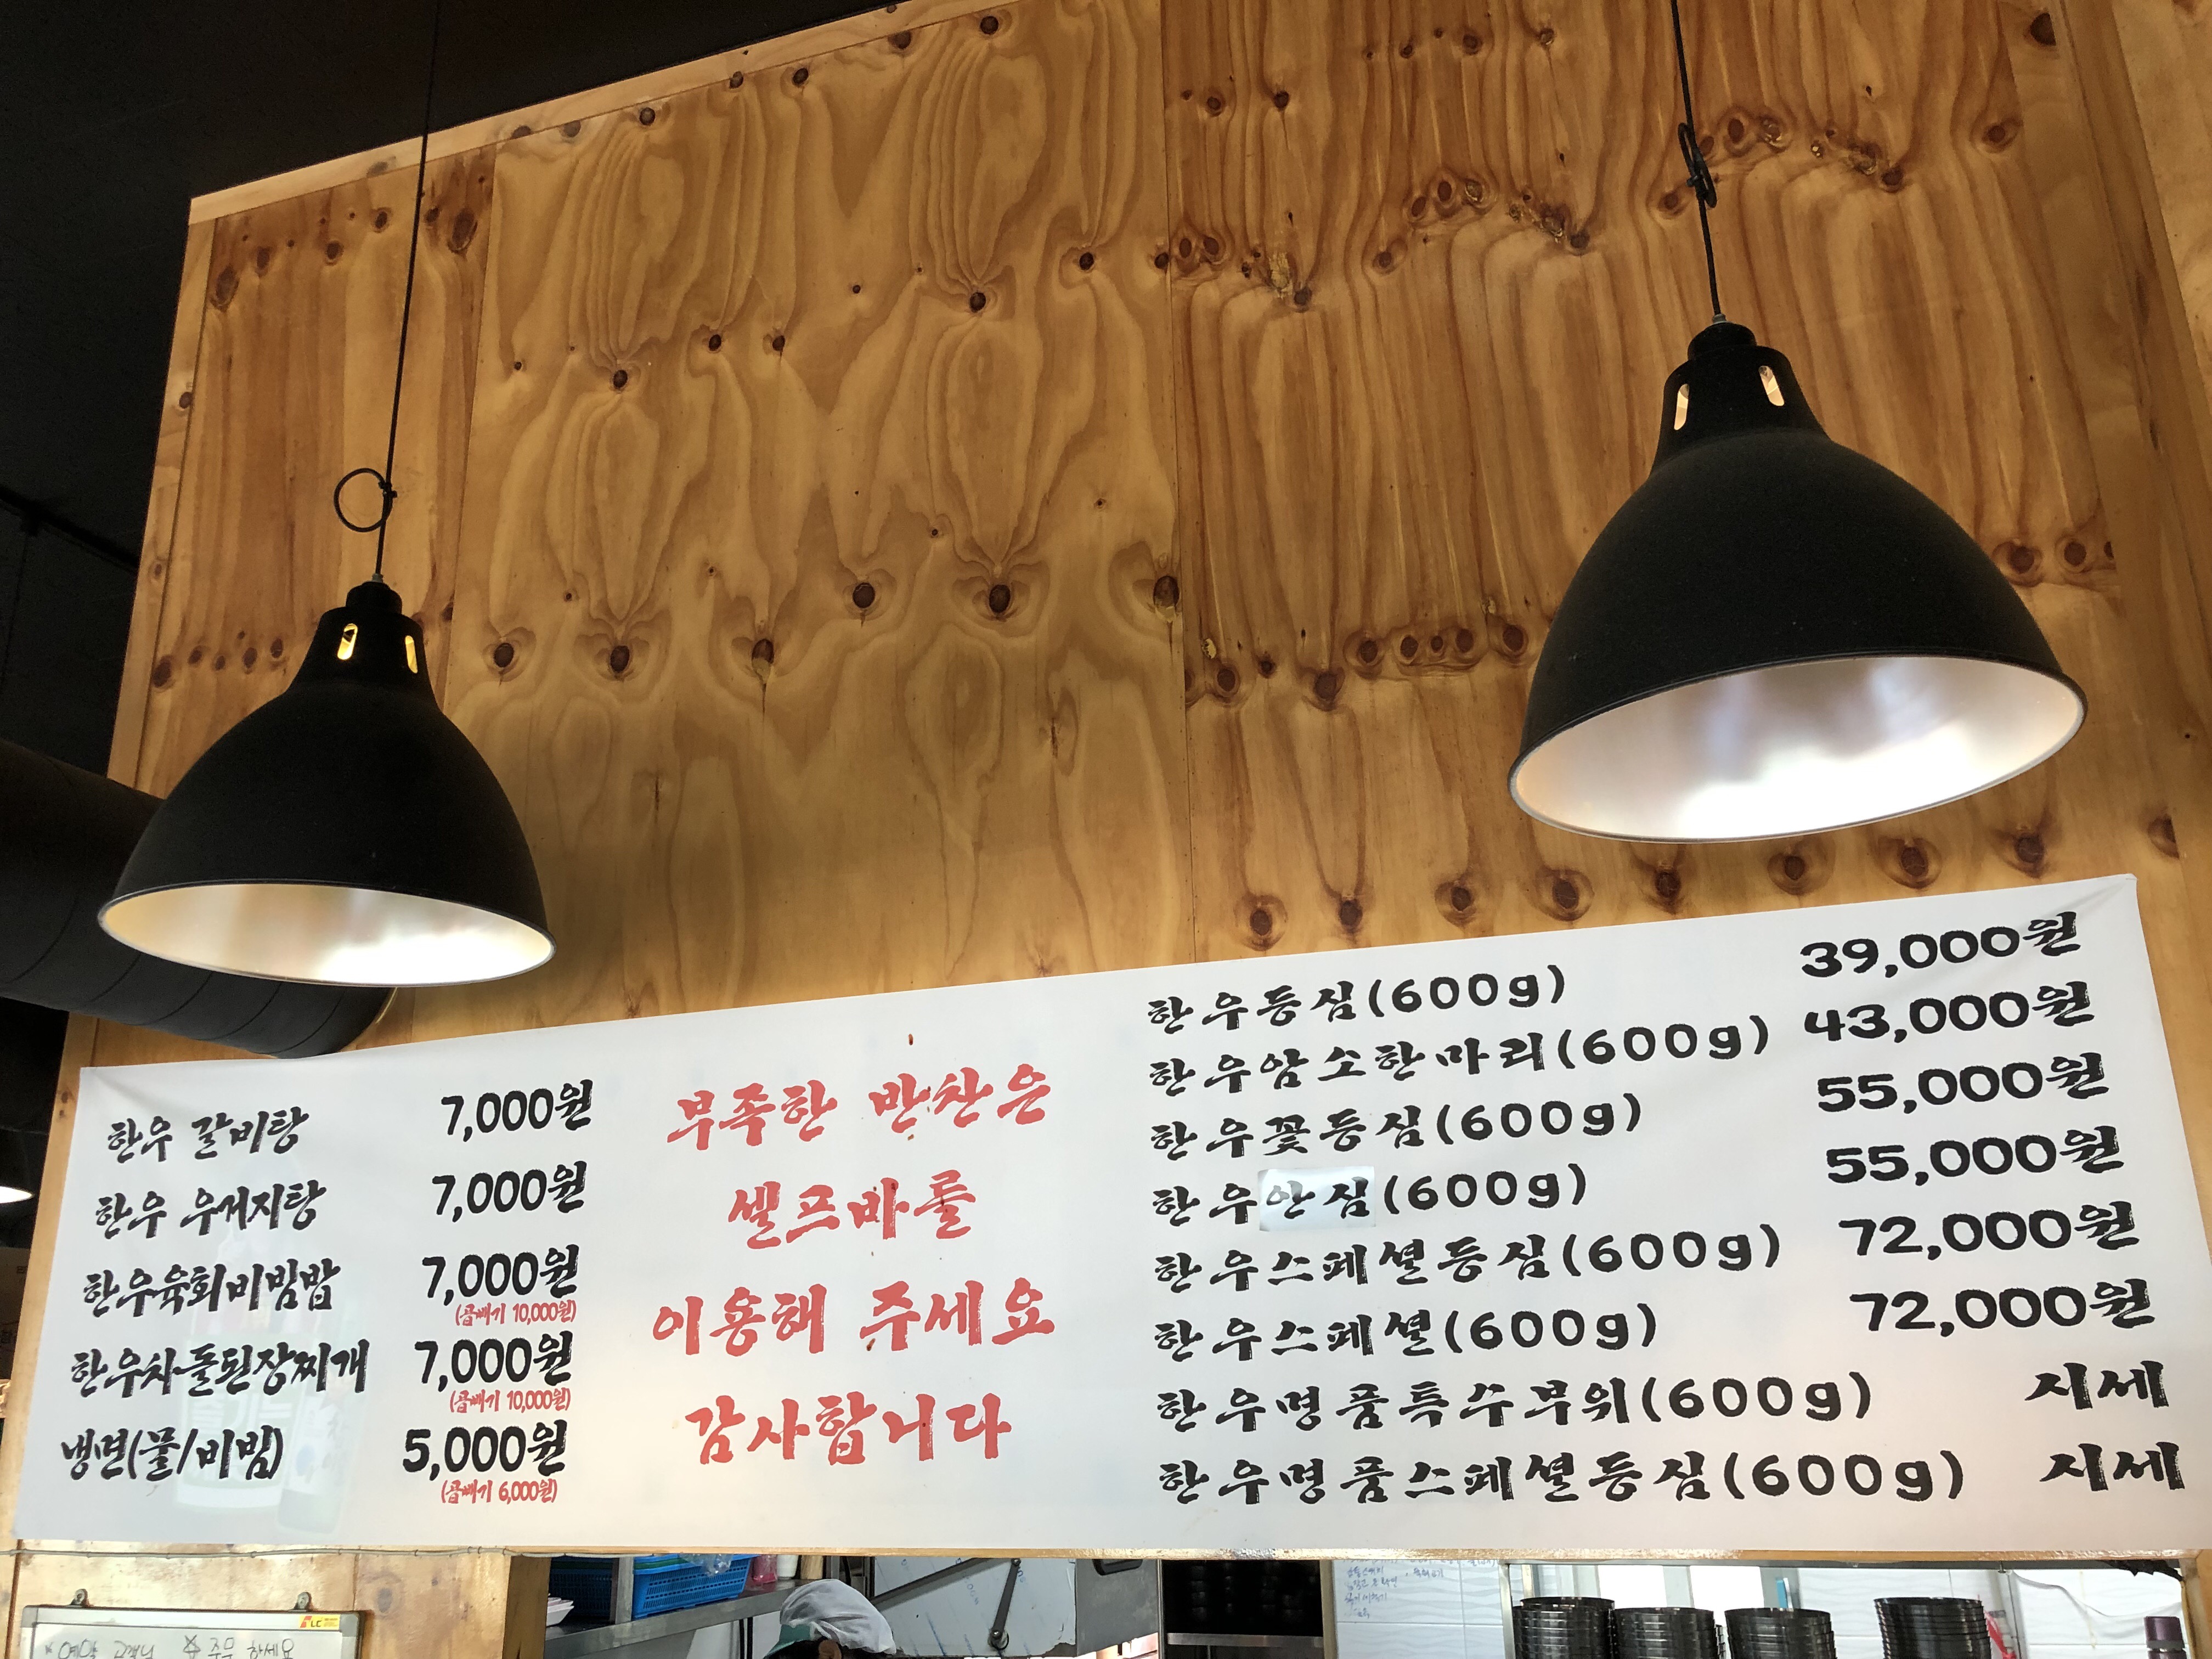 한우 갈비탕 7,000원
한우 우거지탕 7,000원
한우육회비빔밥 7,000원
(곱빼기 10,000원)
한우차돌된장찌개 7,000원
(곱빼기 10,000원)
냉면(물/비빔) 5,000원
(곱빼기 6,000원)
부족한 반찬은
셀프바를
이용해 주세요
감사합니다
한우등심(600g) 39,000원
한우암소한마리(600g) 43,000원
한우꽃등심(600g) 55,000원
한우안심(600g) 55,000원
한우스페셜등심(600g) 72,000원
한우스페셜(600g) 72,000원
한우명품특수부위(600g) 시세
한우명품스페셜등심(600g) 시세
*예약 고객님 주무하세요